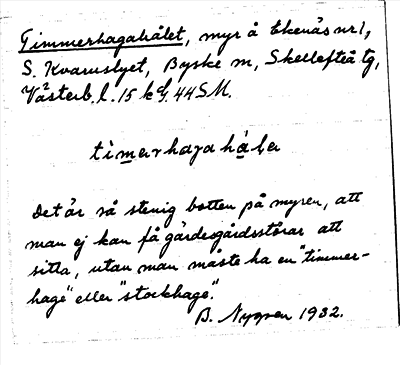 Timmerhagahålet, myr å Ekenäs nr 1,
S. Kvarnslyet, Byske sn, Skellefteå tg,
Västerb. l. 15 kd. 44 SM.
timerhagahåle
Det är så stenig botten på myren, att
man ej kan få gärdesgårdsstörar att
sitta, utan man måste ha en "timmer-
hage" eller "stockhage".
B. Nygren 1932.